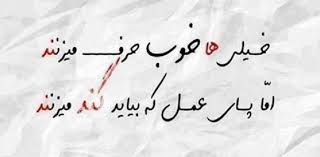 خیلی ها خوب حرف میزنند
امّا پای عمل که بیاید گند میزنند